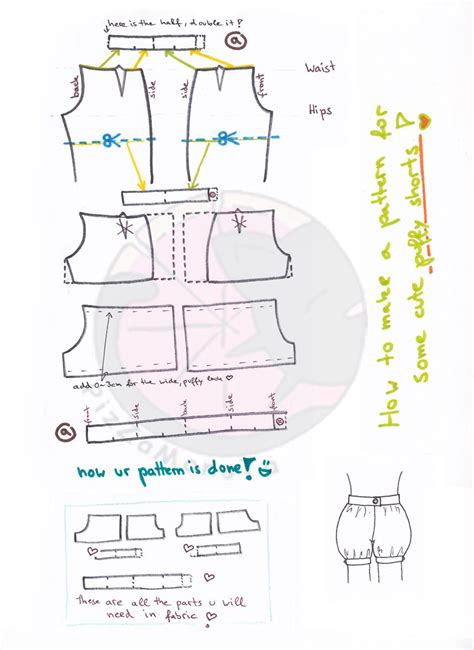 here is the half, double it!
a
Waist
Hips
back
side
side
front
How to make a pattern for
some cute puffy shorts!
add 0-3cm for the wide, puffy look
a
front
side
back
side
front
now ur pattern is done!
These are all the parts u will
need in fabric